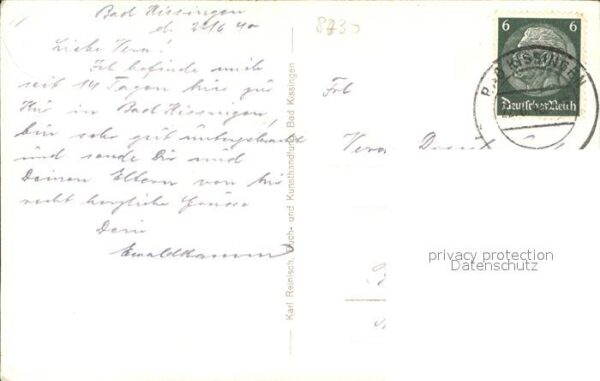 Bad Kissingen
d. 22/6 40
Liebe Vera!
Ich befinde mich
seit 14 Tagen hier zur
Kur in Bad Kissingen,
bin sehr gut untergebracht
und sende Dir und
Deinen Eltern von hier
recht herzliche Grüsse
Dein
Karl Reinisch, Buch- und Kunsthandlung, Bad Kissingen
Frl
Vera
6 6
Deutsches Reich
BAD KISSINGEN
privacy protection
Datenschutz